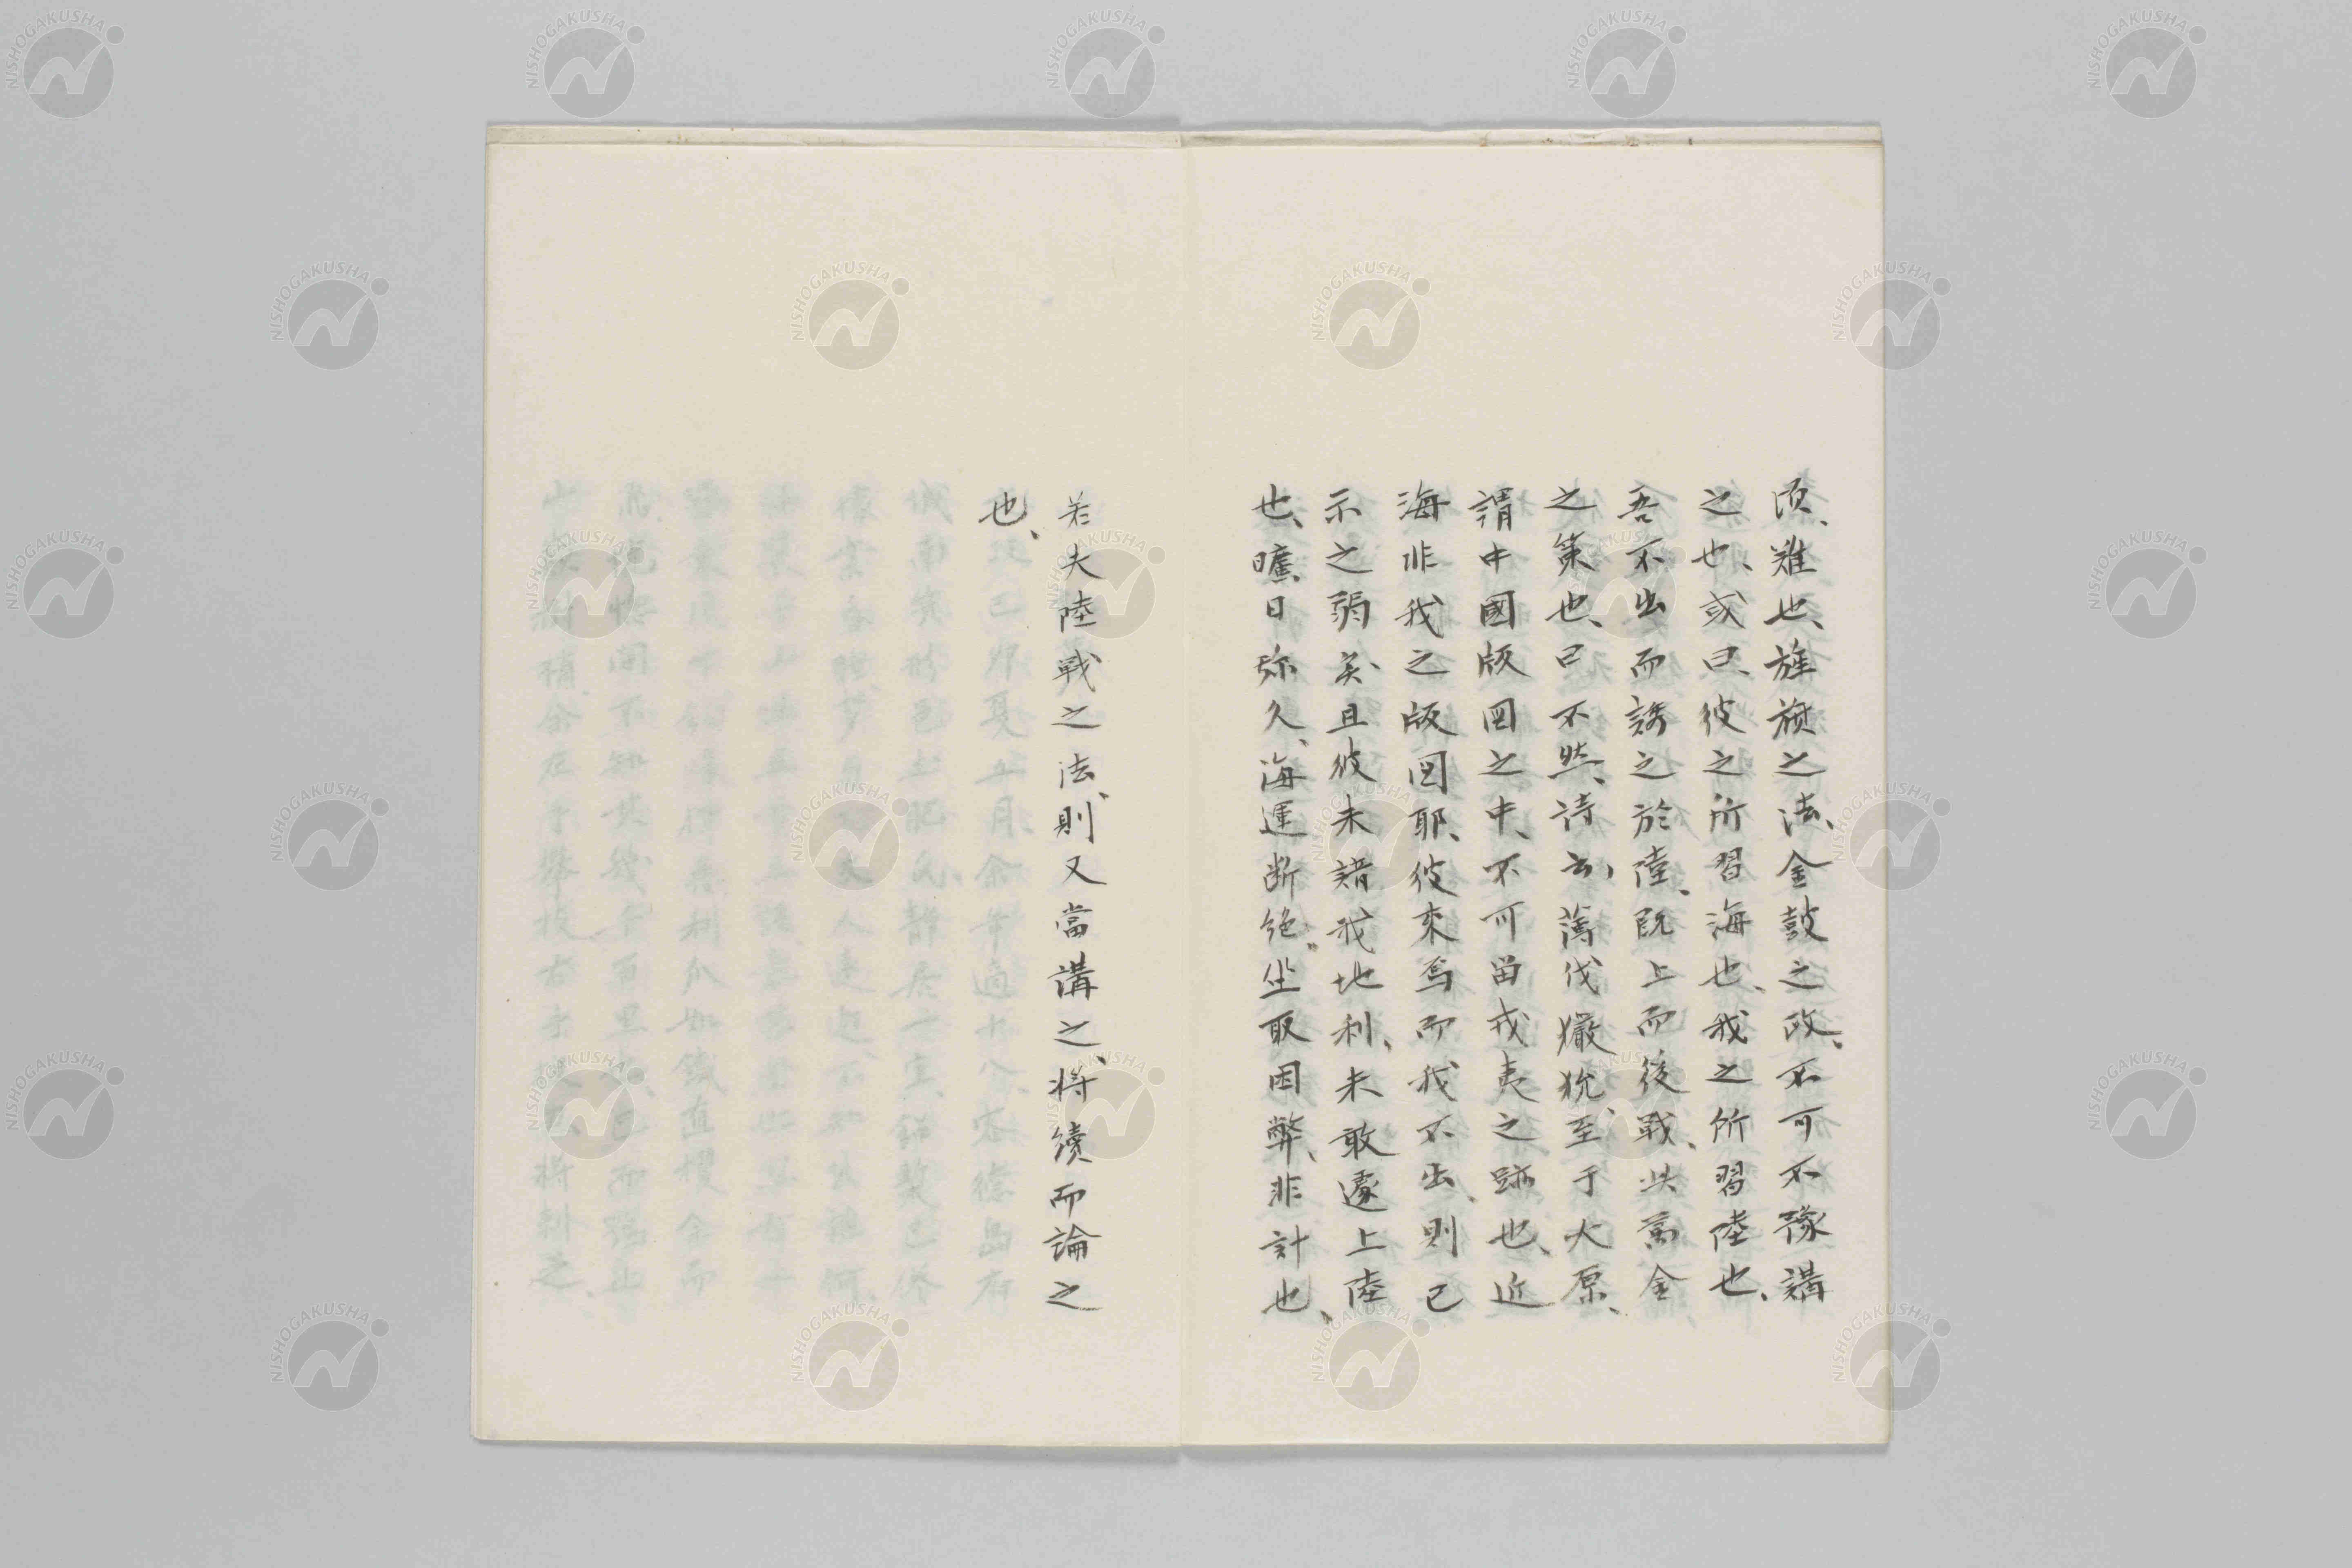 須、難也、旌旗之法、金鼓之政、不可不豫講
之也、或曰、彼之所習海也、我之所習陸也、
吾不出而誘之於陸、既上而後戰、此萬全
之策也、曰不然、詩云、薄伐玁狁、至于大原、
謂中國版図之中、不可留戎夷之跡也、近
海非我之版図耶、彼来焉而我不出、則已
示之弱矣、且彼未諳我地利、未敢遽上陸
也、曠日弥久、海運断絶、坐取困弊、非計也、
若夫陸戦之法、則又當講之、将續而論之
也、
NISHOGAKUSHA